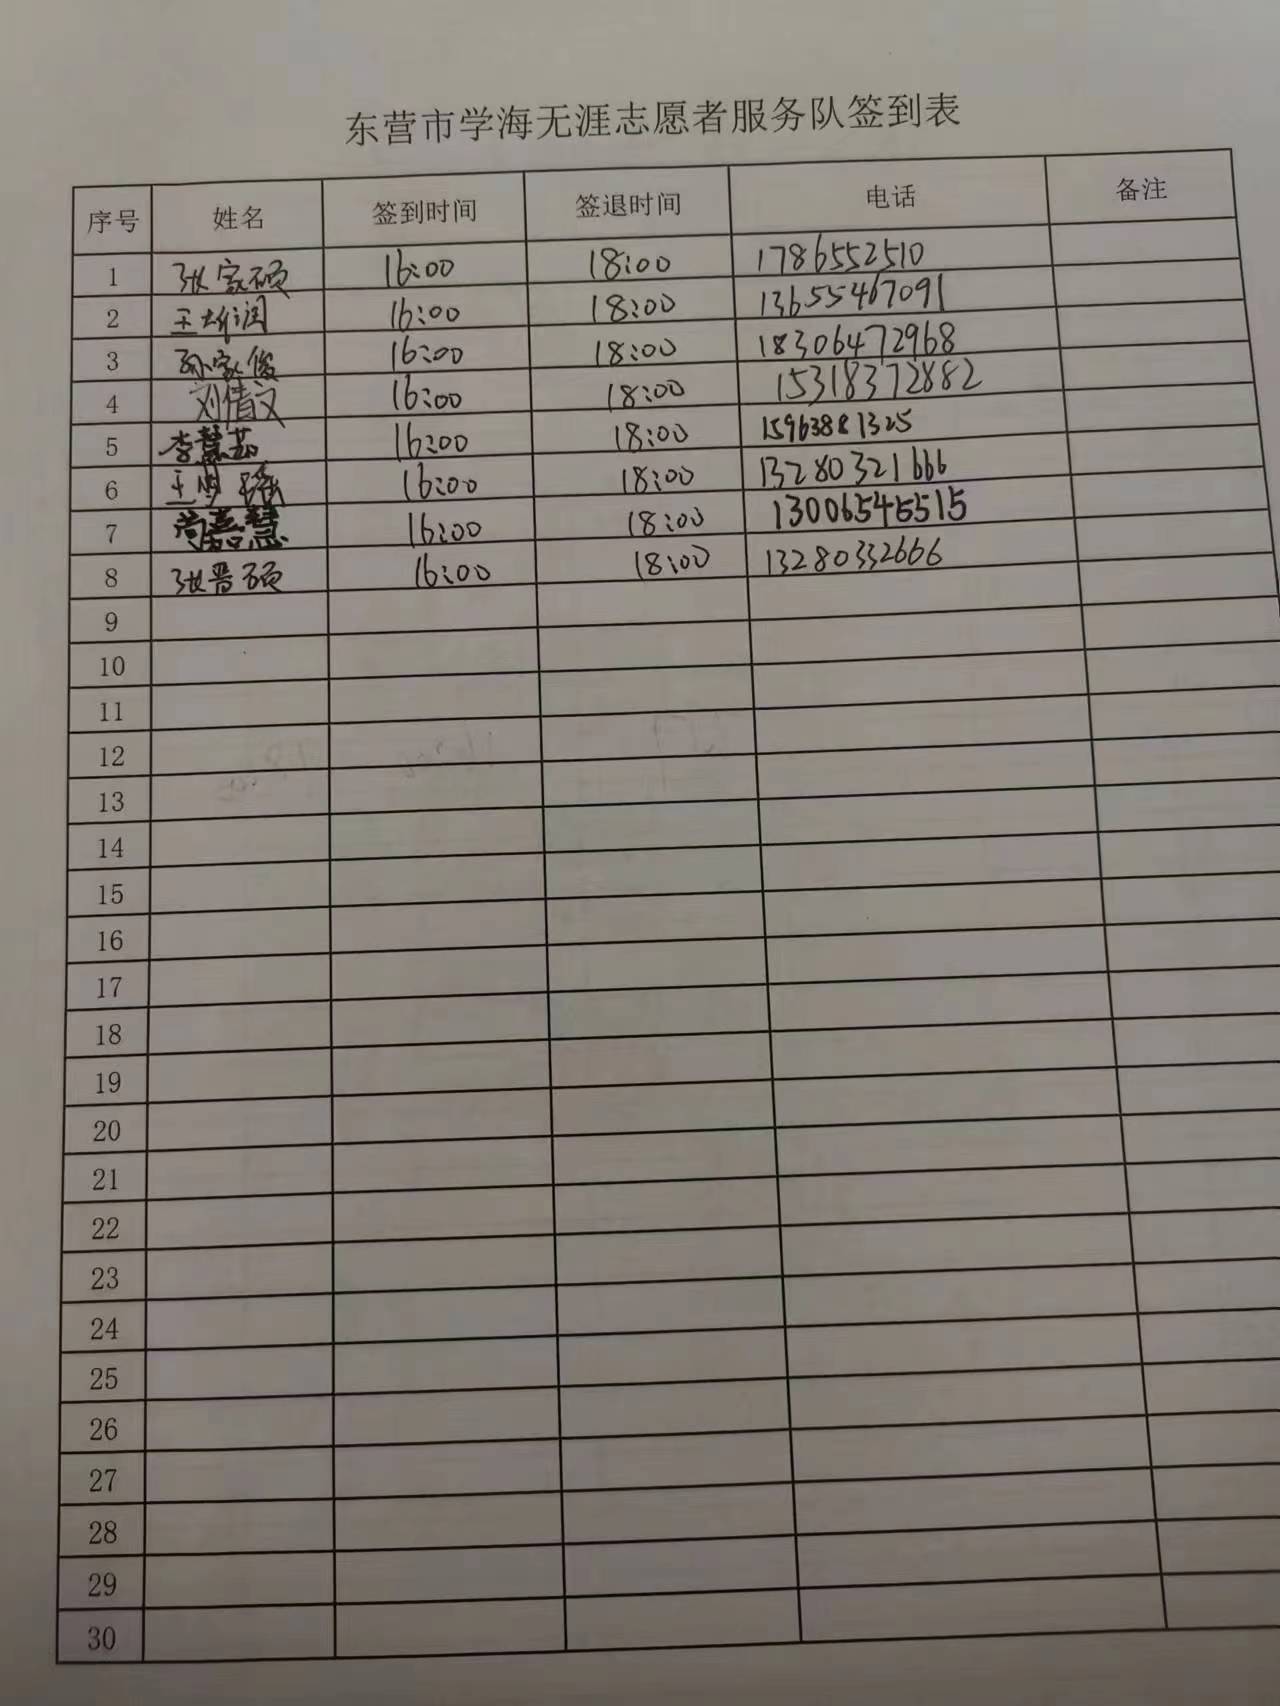 东营市学海无涯志愿者服务队签到表
序号 姓名 签到时间 签退时间 电话 备注
1 张家硕 16:00 18:00 1786552510
2 王 润 16:00 18:00 13655467091
3 孙家俊 16:00 18:00 18306472968
4 刘倩文 16:00 18:00 15318372882
5 李慧茹 16:00 18:00 15963881325
6 王梦瑶 16:00 18:00 13280321666
7 尚嘉慧 16:00 18:00 13006545515
8 张晋硕 16:00 18:00 13280332666
9
10
11
12
13
14
15
16
17
18
19
20
21
22
23
24
25
26
27
28
29
30